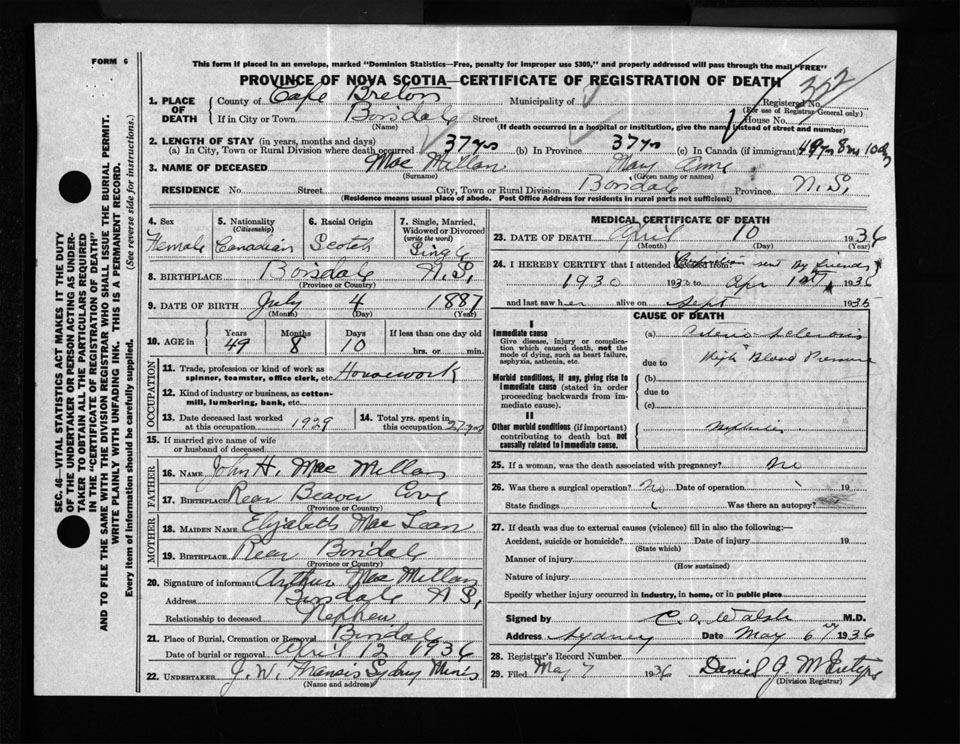 FORM 6
This form if placed in an envelope, marked "Dominion Statistics—Free, penalty for improper use $300," and properly addressed will pass through the mail "FREE"
PROVINCE OF NOVA SCOTIA—CERTIFICATE OF REGISTRATION OF DEATH
332
1. PLACE OF DEATH
County of Cape Breton Municipality of Registered No.
(For use of Registrar General only)
If in City or Town Boisdale Street House No.
(Name) (If death occurred in a hospital or institution, give the name instead of street and number)
2. LENGTH OF STAY (in years, months and days)
(a) In City, Town or Rural Division where death occurred 37 yrs (b) In Province 37 yrs (c) In Canada (if immigrant) 49 yrs 8 m 10 dy
3. NAME OF DECEASED Mac Millan Mary Anne
(Surname) (Given name or names)
RESIDENCE No. Street City, Town or Rural Division Boisdale Province N.S.
(Residence means usual place of abode. Post Office Address for residents in rural parts not sufficient)
4. Sex Female
5. Nationality (Citizenship) Canadian
6. Racial Origin Scotch
7. Single, Married, Widowed or Divorced (write the word) Single
8. BIRTHPLACE Boisdale N.S.
(Province or Country)
9. DATE OF BIRTH July 4 1887
(Month) (Day) (Year)
10. AGE in Years 49 Months 8 Days 10 If less than one day old hrs. or min.
OCCUPATION
11. Trade, profession or kind of work as spinner, teamster, office clerk, etc. Housework
12. Kind of industry or business, as cotton-mill, lumbering, bank, etc.
13. Date deceased last worked at this occupation 1929
14. Total yrs. spent in this occupation 27 yrs
15. If married give name of wife or husband of deceased
FATHER
16. NAME John H. Mac Millan
17. BIRTHPLACE Rear Beaver Cove
(Province or Country)
MOTHER
18. MAIDEN NAME Elizabeth Mac Lean
19. BIRTHPLACE Rear Boisdale
(Province or Country)
20. Signature of informant Arthur Mac Millan
Address Boisdale N.S.
Relationship to deceased Nephew
21. Place of Burial, Cremation or Removal Boisdale
Date of burial or removal April 12 1936
22. UNDERTAKER J. W. Francis Sydney Mines
(Name and address)
MEDICAL CERTIFICATE OF DEATH
23. DATE OF DEATH April 10 1936
(Month) (Day) (Year)
24. I HEREBY CERTIFY that I attended deceased from sent by friends
1930 193 to Apr 1st 1936
and last saw her alive on Sept 1935
CAUSE OF DEATH
I
Immediate cause
Give disease, injury or complication which caused death, not the mode of dying, such as heart failure, asphyxia, asthenia, etc.
(a) Arterio-sclerosis
due to High Blood Pressure
Morbid conditions, if any, giving rise to immediate cause (stated in order proceeding backwards from immediate cause).
(b)
due to
(c)
II
Other morbid conditions (if important) contributing to death but not causally related to immediate cause.
Nephritis
25. If a woman, was the death associated with pregnancy? No
26. Was there a surgical operation? No Date of operation 19
State findings Was there an autopsy?
27. If death was due to external causes (violence) fill in also the following:—
Accident, suicide or homicide? Date of injury 19
(State which)
Manner of injury
(How sustained)
Nature of injury
Specify whether injury occurred in industry, in home, or in public place
Signed by C. O. Walsh M.D.
Address Sydney Date May 6th 1936
28. Registrar's Record Number
29. Filed May 7 1936 Daniel J. McIntyre
(Division Registrar)
SEC. 46—VITAL STATISTICS ACT MAKES IT THE DUTY
OF THE UNDERTAKER OR PERSON ACTING AS UNDER-
TAKER TO OBTAIN ALL THE PARTICULARS REQUIRED
IN THE "CERTIFICATE OF REGISTRATION OF DEATH"
AND TO FILE THE SAME WITH THE DIVISION REGISTRAR WHO SHALL ISSUE THE BURIAL PERMIT.
WRITE PLAINLY WITH UNFADING INK. THIS IS A PERMANENT RECORD.
Every item of information should be carefully supplied. (See reverse side for instructions.)